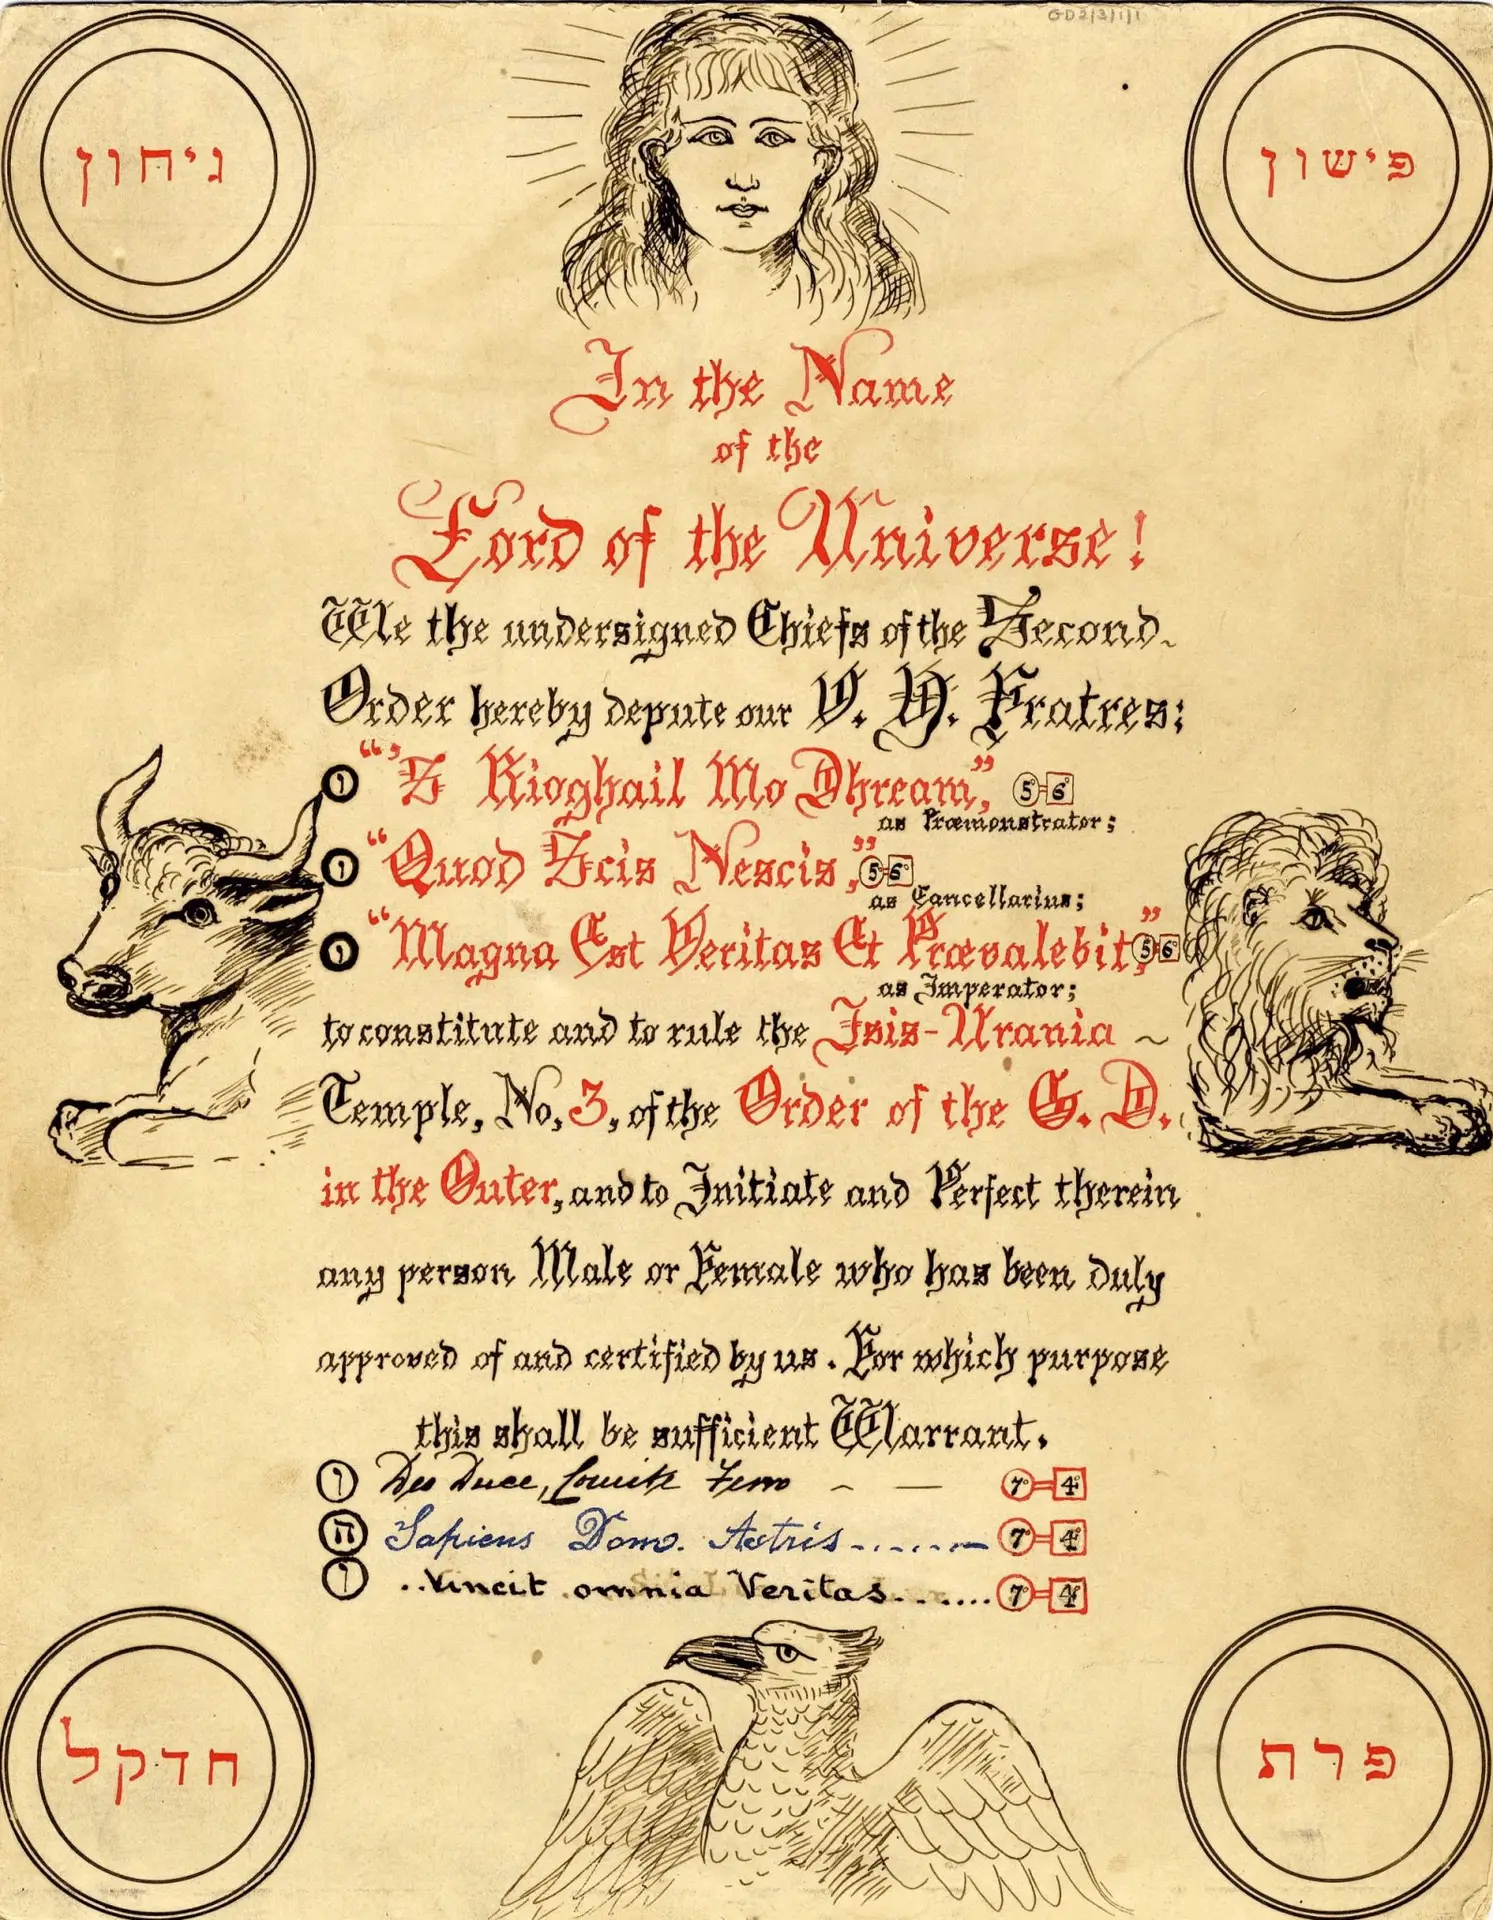 GD2/3/1/1
גיחון
פישון
In the Name
of the
Lord of the Universe!
We the undersigned Chiefs of the Second
Order hereby depute our V. H. Fratres:
ו "'S Rioghail Mo Dhream", 5°=6°
as Præmonstrator;
ו "Quod Scis Nescis," 5=6°
as Cancellarius;
ו "Magna Est Veritas Et Prævalebit," 5=6°
as Imperator;
to constitute and to rule the Isis-Urania ~
Temple, No. 3, of the Order of the G. D.
in the Outer, and to Initiate and Perfect therein
any person Male or Female who has been duly
approved of and certified by us. For which purpose
this shall be sufficient Warrant.
ו Deo Duce, Comite Ferro ~ — 7°=4°
ה Sapiens Dom. Astris........ 7°=4°
ו ..Vincit omnia Veritas....... 7°=4°
חדקל
פרת